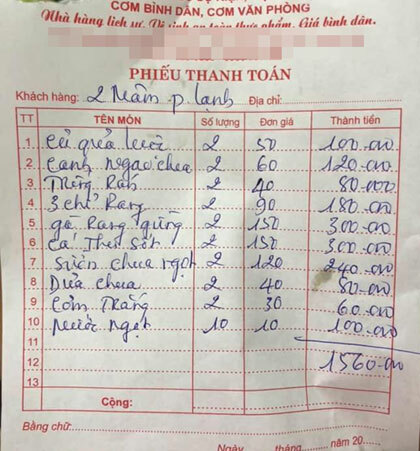 CƠM BÌNH DÂN, CƠM VĂN PHÒNG
Nhà hàng lịch sự. Vệ sinh an toàn thực phẩm. Giá bình dân.
PHIẾU THANH TOÁN
Khách hàng: 2 Mâm p. lạnh Địa chỉ:
TT TÊN MÓN Số lượng Đơn giá Thành tiền
1 Củ quả luộc 2 50 100.000
2 Canh ngao chua 2 60 120.000
3 Trứng Rán 2 40 80.000
4 3 chỉ Rang 2 90 180.000
5 gà Rang gừng 2 150 300.000
6 Cá Thu Sốt 2 150 300.000
7 Sườn chua ngọt 2 120 240.000
8 Dưa chua 2 40 80.000
9 Cơm Trắng 2 30 60.000
10 Nước ngọt 10 10 100.000
11
12 1560.000
13
Cộng:
Bằng chữ:
Ngày tháng năm 20